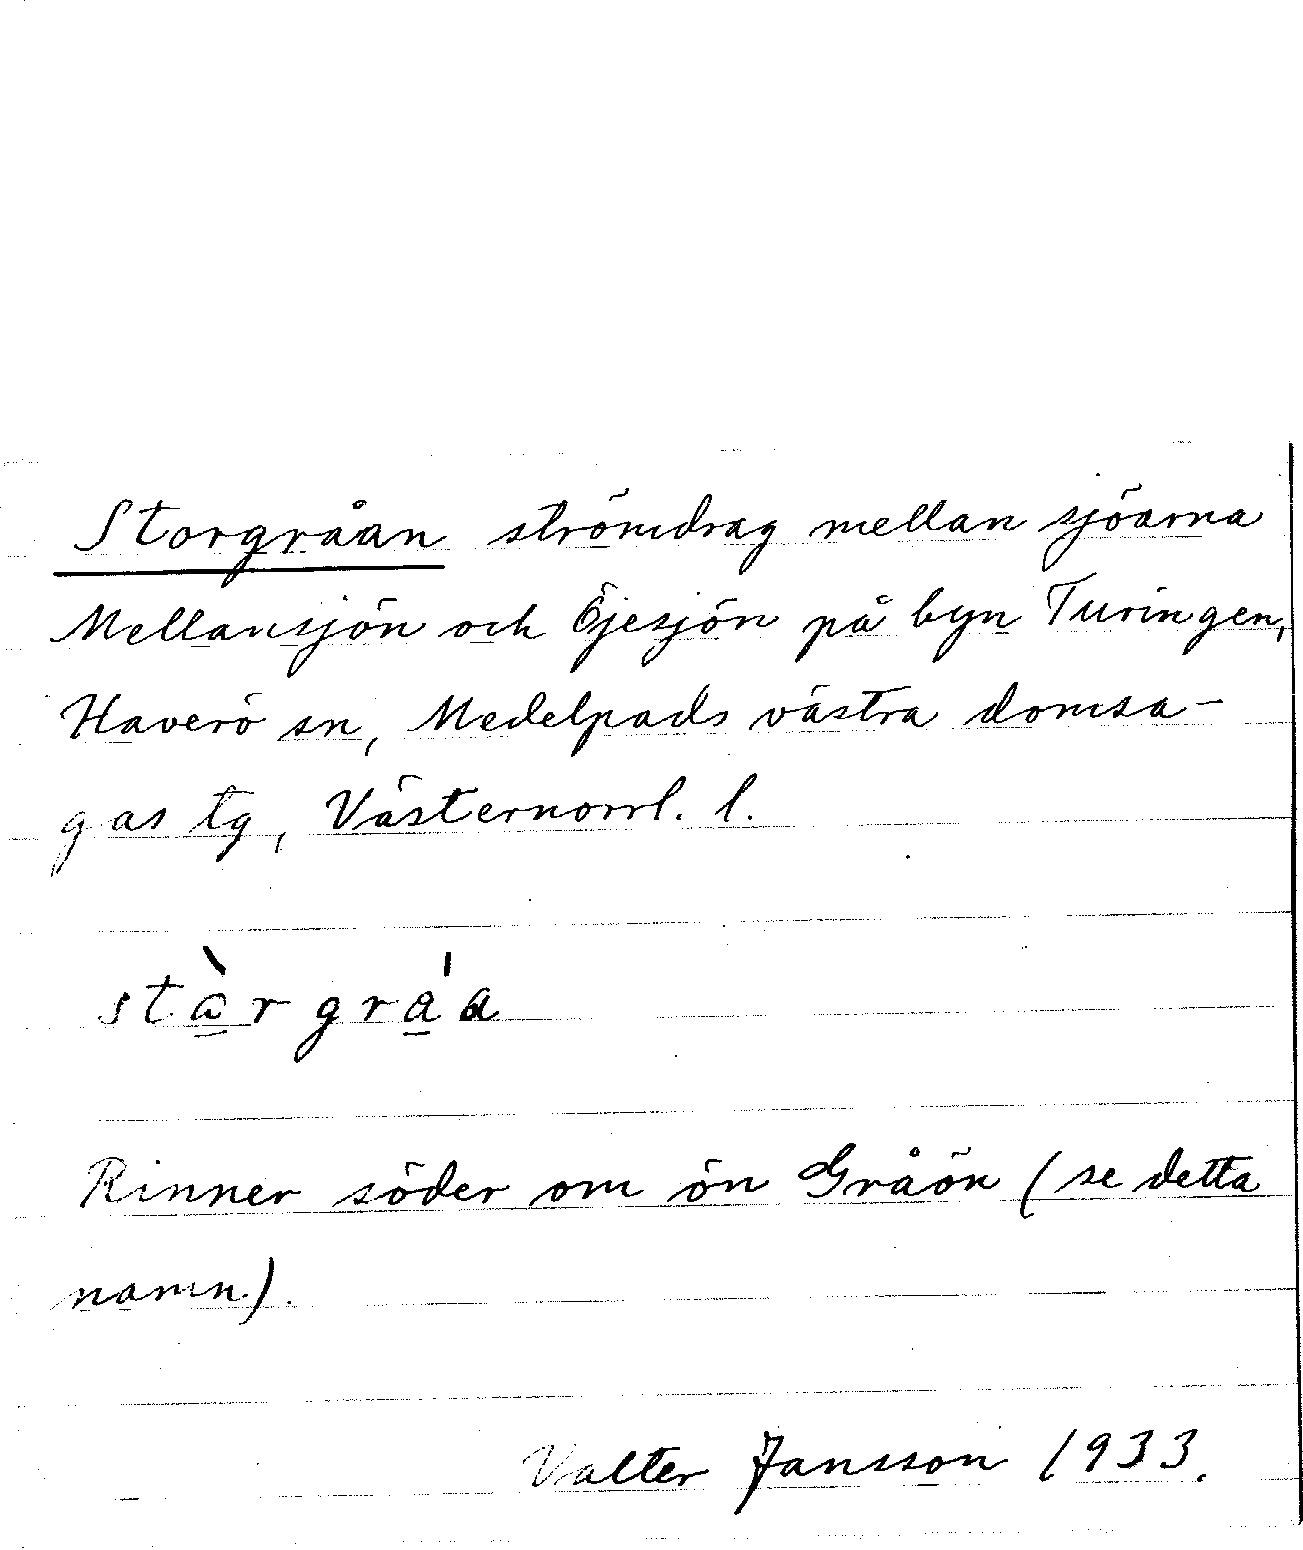 Storgråan strömdrag mellan sjöarna
Mellansjön och Öjesjön på byn Turingen,
Haverö sn, Medelpads västra domsa-
gas tg, Västernorrl. l.
stàrgráa
Rinner söder om ön Gråön (se detta
namn).
Valter Jansson 1933.